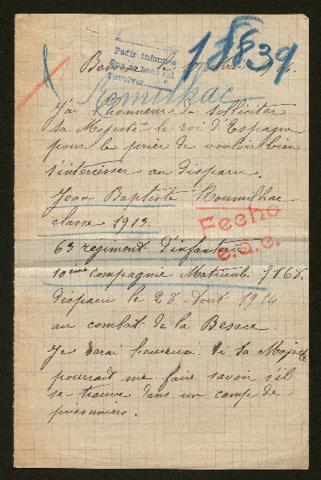 18839
Pedir informe
Romilhac
J'ai l'honneur de solliciter
sa Majesté le roi d'Espagne
pour le prier de vouloir bien
s'intéresser au disparu.
Jean Baptiste Roumilhac
classe 1913.
Fecho
63 régiment d'infanterie
e.a.c.
10ème Compagnie Matricule 7168.
disparu le 28 Aout 1914
au combat de la Besace.
Je serai heureux si sa Majesté
pourrait me faire savoir s'il
se trouve dans un camp de
prisonniers.